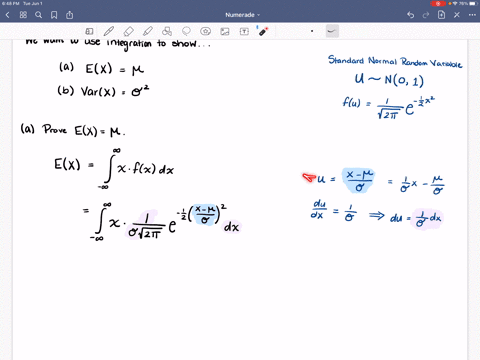 8:48 PM Tue Jun 1
Numerade
76%
We want to use integration to show...
(a) E(X) = μ
(b) Var(X) = σ²
Standard Normal Random Variable
U ~ N(0, 1)
f(u) = 1/√2π e^(-1/2 x²)
(a) Prove E(X) = μ.
E(X) = ∫_{-∞}^{∞} x · f(x) dx
= ∫_{-∞}^{∞} x · 1/(σ√2π) e^(-1/2 ((x-μ)/σ)²) dx
u = (x-μ)/σ = 1/σ x - μ/σ
du/dx = 1/σ ⟹ du = 1/σ dx